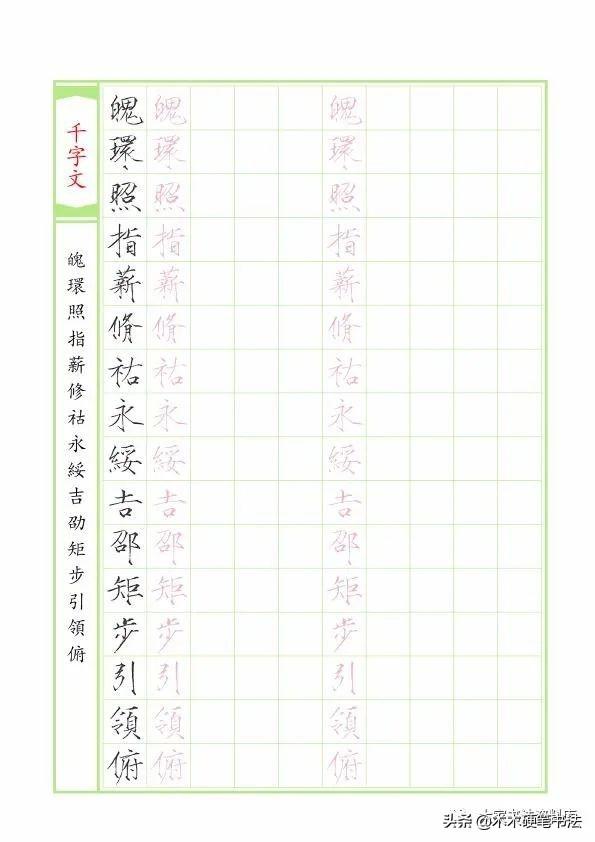 千字文
魄環照指薪修祜永綏吉劭矩步引領俯
魄環照指薪脩祜永綏𠮷邵矩步引領俯
魄環照指薪脩祜永綏𠮷邵矩步引領俯
魄環照指薪脩祜永綏𠮷邵矩步引領俯
头条 @木木硬笔书法